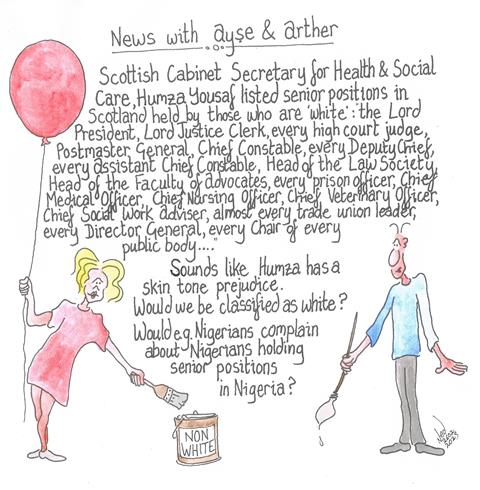 News with ayse & arther
Scottish Cabinet Secretary for Health & Social
Care, Humza Yousaf listed senior positions in
Scotland held by those who are 'white': "the Lord
President, Lord Justice Clerk, every high court judge,
Postmaster General, Chief Constable, every Deputy Chief,
every assistant Chief Constable, Head of the Law Society,
Head of the Faculty of advocates, every prison officer, Chief
Medical Officer, Chief Nursing Officer, Chief Veterinary Officer,
Chief Social Work adviser, almost every trade union leader,
every Director General, every Chair of every
public body...."
Sounds like Humza has a
skin tone prejudice.
Would we be classified as white?
Would e.g. Nigerians complain
about Nigerians holding
senior positions
in Nigeria?
NON
WHITE